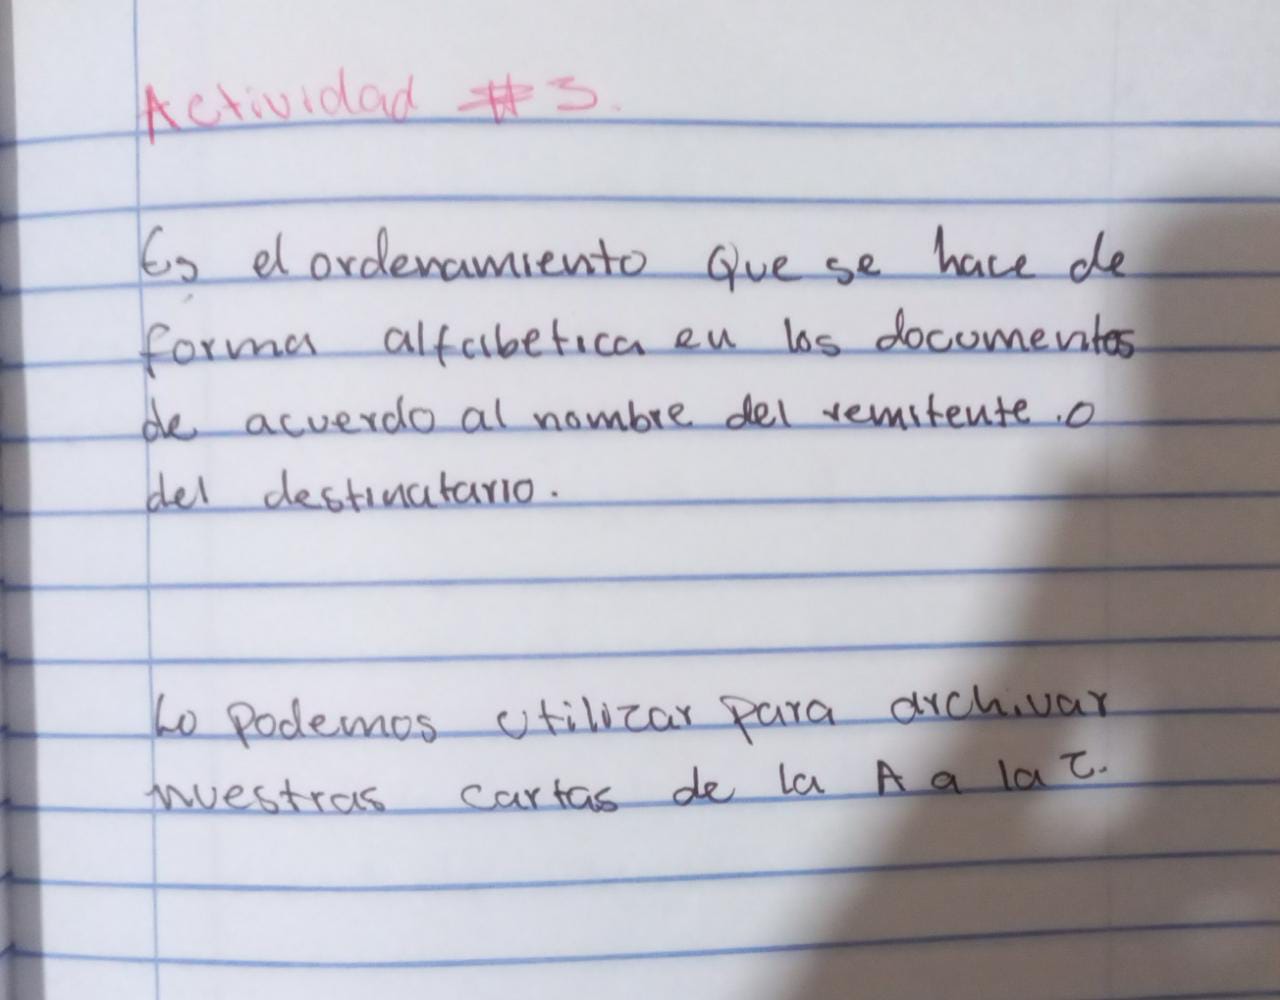 Actividad #3.
Es el ordenamiento que se hace de
forma alfabetica en los documentos
de acuerdo al nombre del remitente .o
del destinatario.
Lo podemos utilizar para archivar
nuestras cartas de la A a la Z.